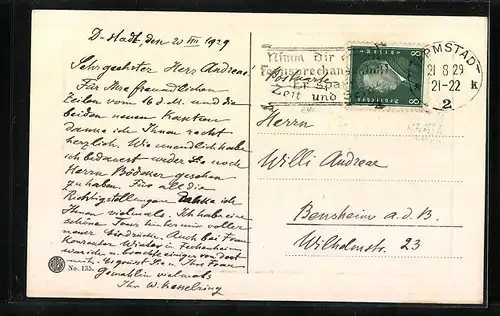 D-Stadt, den 20 VIII 1929
Sehr geehrter Herr Andreae!
Für Ihre freundlichen
Zeilen vom 16 d. M. und die
beiden neuen Karten
danke ich Ihnen recht
herzlich. Wie unendlich habe
ich bedauert weder Sie noch
Herrn Bödmer gesehen
zu haben. Für all die
Richtigstellungen danke ich
Ihnen vielmals. Ich habe eine
schöne Tour hinter mir voller
neuer Eindrücke. Auch bei Frau
Winter in
war ich u. brachte einiges von dort
mit. Es grüsst Sie u. Ihre Frau
Gemahlin vielmals
Ihr W. Kesselring
No. 135.
Nimm Dir
Fernsprechanschluß
Er spart
Zeit und
Postkarte
8 8
Deutsches
DARMSTADT
21 8 29
21-22
k
2
Herrn
Willi Andreae
Bensheim a.d.B.
Wilhelmstr. 23